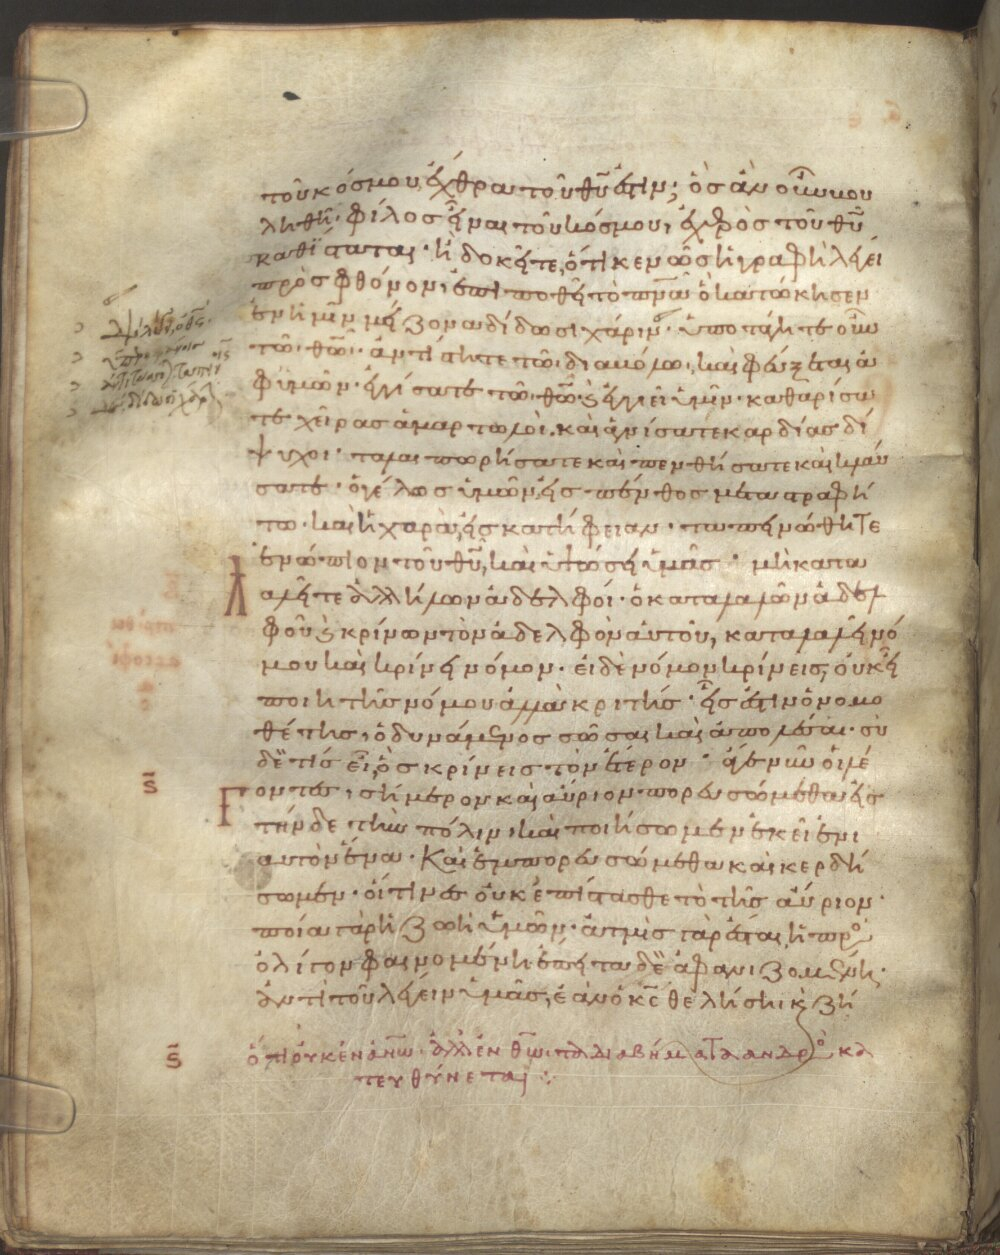 τοῦ κόσμου, ἔχθρα τοῦ θῦ ἐστιν; ὃς ἂν οὖν βου
ληθῆ· φίλος εἶναι τοῦ κόσμου, ἐχθρὸς τοῦ θῦ
καθίσταται· ἢ δοκεῖτε, ὅτι κενῶς ἡ γραφὴ λέγει
πρὸς φθόνον, ἐπιποθεῖ τὸ πνᾶ ὃ κατώκησεν
ἐν ἡμῖν μείζονα δίδωσι χάριν· ὑποτάγητε οὖν
τῶ θῶ· ἀντίστητε τῶ διαβόλω, καὶ φεύξεται ἀ
φ' ὑμῶν· ἐγγίσατε τῶ θῶ ϗ ἐγγιεῖ ὑμῖν· καθαρίσα
τε χεῖρας ἁμαρτωλοὶ, καὶ ἁγνίσατε καρδίας δί
ψυχοι· ταλαιπωρήσατε καὶ πενθήσατε καὶ κλαύ
σατε· ὁ γέλως ὑμῶν εἰς πένθος μεταστραφή
τω· καὶ ἡ χαρὰ, εἰς κατήφειαν· ταπεινώθητε
ἐνώπιον τοῦ θῦ, καὶ ὑψώσει ὑμᾶς· μὴ κατα
λαλεῖτε ἀλλήλων ἀδελφοί· ὁ καταλαλῶν ἀδελ
φοῦ ϗ κρίνων τὸν ἀδελφὸν αὐτοῦ, καταλαλεῖ νό
μου καὶ κρίνει νόμον· εἰ δὲ νόμον κρίνεις, οὐκ εἶ
ποιητὴς νόμου ἀλλὰ κριτής· εἷς ἐστιν ὁ νομο
θέτης, ὁ δυνάμενος σῶσαι καὶ ἀπολέσαι· σὺ
δὲ τίς εἶ, ὃς κρίνεις τὸν ἕτερον· ἄγε νῦν οἱ λέ
γοντες, σήμερον καὶ αὔριον πορευσώμεθα εἰς
τήνδε τὴν πόλιν, καὶ ποιήσωμεν ἐκεῖ ἐνι
αυτὸν ἕνα· Καὶ ἐμπορευσώμεθα καὶ κερδή
σωμεν· οἵτινες οὐκ ἐπίστασθε τὸ τῆς αὔριον·
ποία γὰρ ἡ ζωὴ ὑμῶν· ἀτμὶς γὰρ ἔσται, ἡ πρὸ
ὀλίγον φαινομένη ἔπειτα δὲ ἀφανιζομένη·
ἀντὶ τοῦ λέγειν ὑμᾶς, ἐὰν ὁ κς θελήση ϗ ζή
ὅτι οὐκ ἐν ἀνῶ· ἀλλ' ἐν θῶ τὰ διαβήματα ανδρὸ κα
τευθύνεται :·